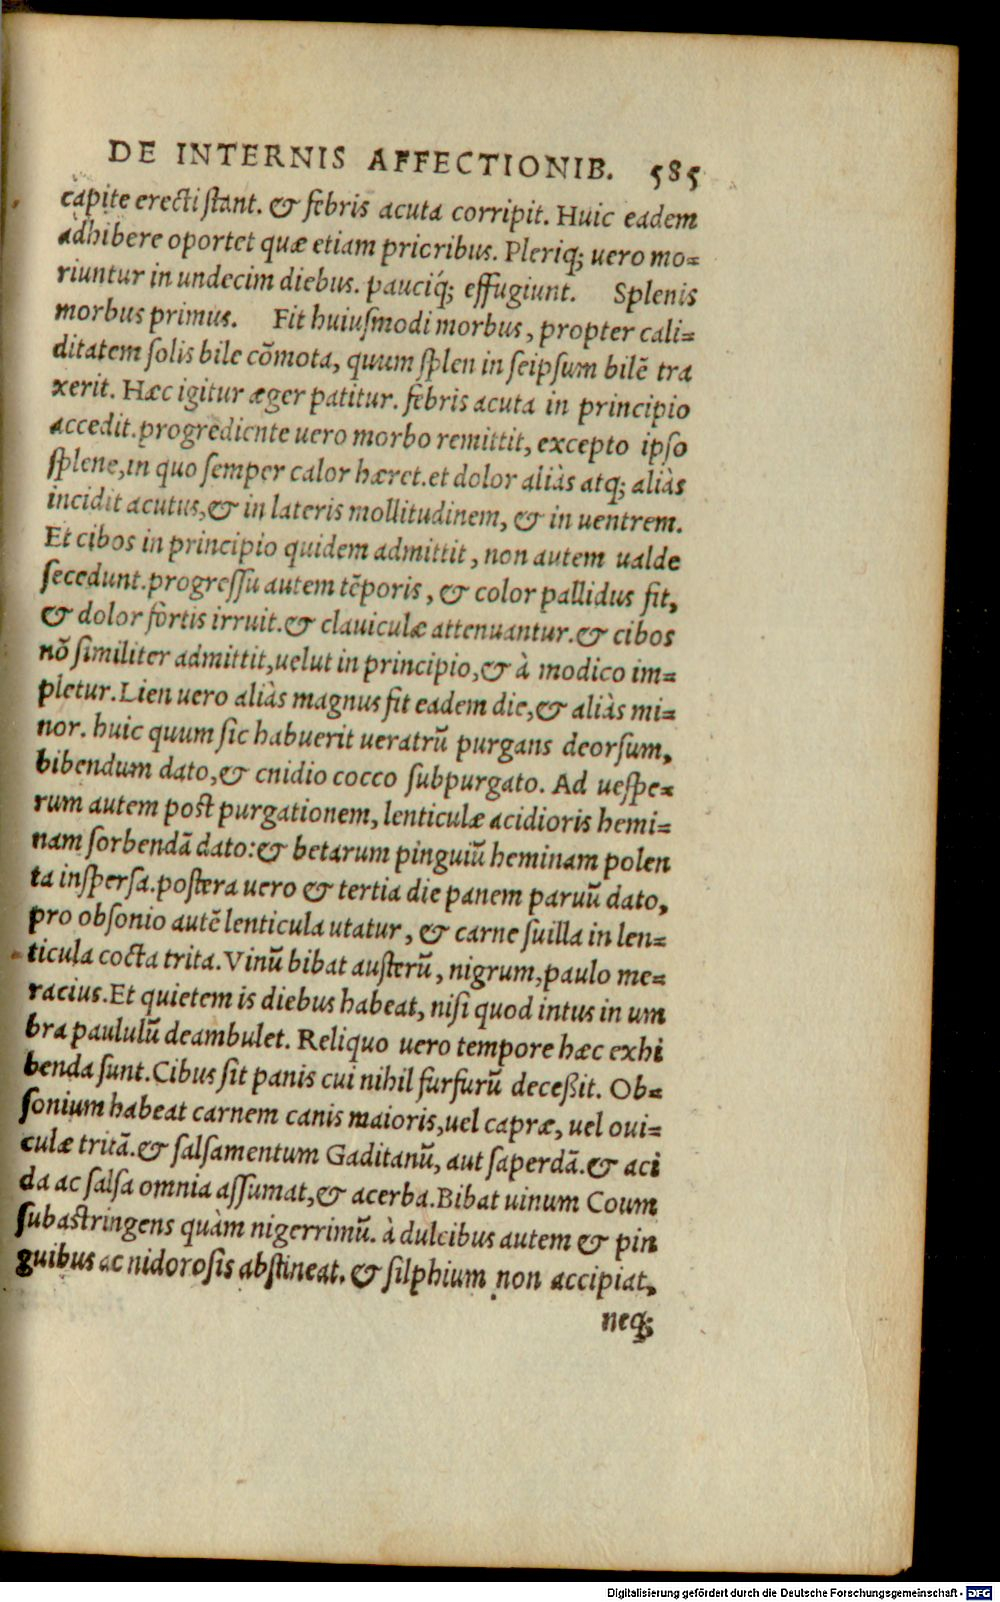 DE INTERNIS AFFECTIONIB. 585
capite erecti stant. & febris acuta corripit. Huic eadem
adhibere oportet quæ etiam prioribus. Pleriq; uero mo=
riuntur in undecim diebus. pauciq́; effugiunt. Splenis
morbus primus. Fit huiusmodi morbus, propter cali=
ditatem solis bile cõmota, quum splen in seipsum bilē tra
xerit. Hæc igitur æger patitur. febris acuta in principio
accedit. progrediente uero morbo remittit, excepto ipso
splene, in quo semper calor hæret. et dolor aliàs atq; aliàs
incidit acutus, & in lateris mollitudinem, & in uentrem.
Et cibos in principio quidem admittit, non autem ualde
secedunt. progressu autem tēporis, & color pallidus fit,
& dolor fortis irruit. & clauiculæ attenuantur. & cibos
nõ similiter admittit, uelut in principio, & à modico im=
pletur. Lien uero aliàs magnus fit eadem die, & aliàs mi=
nor. huic quum sic habuerit ueratrũ purgans deorsum,
bibendum dato, & cnidio cocco subpurgato. Ad uespe=
rum autem post purgationem, lenticulæ acidioris hemi=
nam sorbendã dato: & betarum pinguiũ heminam polen
ta inspersa. postera uero & tertia die panem paruũ dato,
pro obsonio autē lenticula utatur, & carne suilla in len=
ticula cocta trita. Vinũ bibat austerũ, nigrum, paulo me=
racius. Et quietem is diebus habeat, nisi quod intus in um
bra paululũ deambulet. Reliquo uero tempore hæc exhi
benda sunt. Cibus sit panis cui nihil furfurũ deceßit. Ob=
sonium habeat carnem canis maioris, uel capræ, uel oui=
culæ tritã. & salsamentum Gaditanũ, aut saperdã. & aci
da ac salsa omnia assumat, & acerba. Bibat uinum Coum
subastringens quàm nigerrimũ. à dulcibus autem & pin
guibus ac nidorosis abstineat. & silphium non accipiat,
neq;
Digitalisierung gefördert durch die Deutsche Forschungsgemeinschaft - DFG